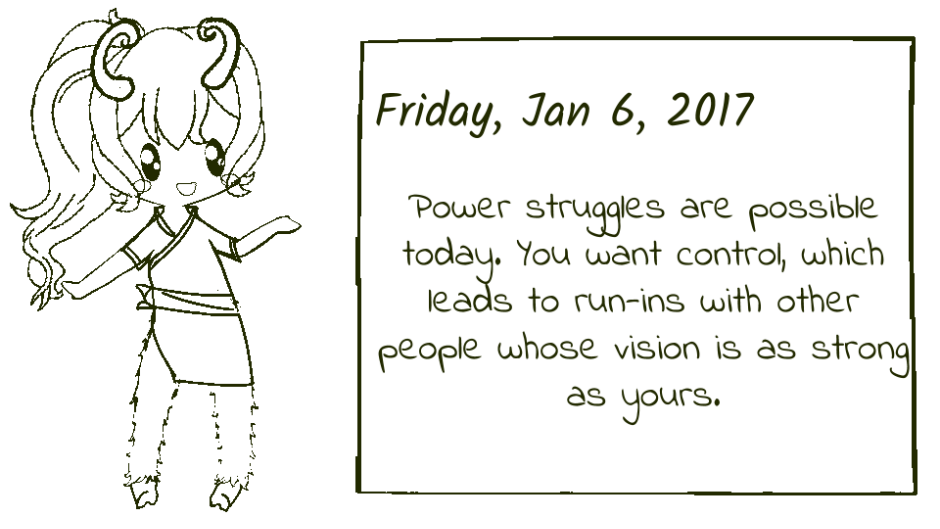 Friday, Jan 6, 2017
Power struggles are possible
today. You want control, which
leads to run-ins with other
people whose vision is as strong
as yours.